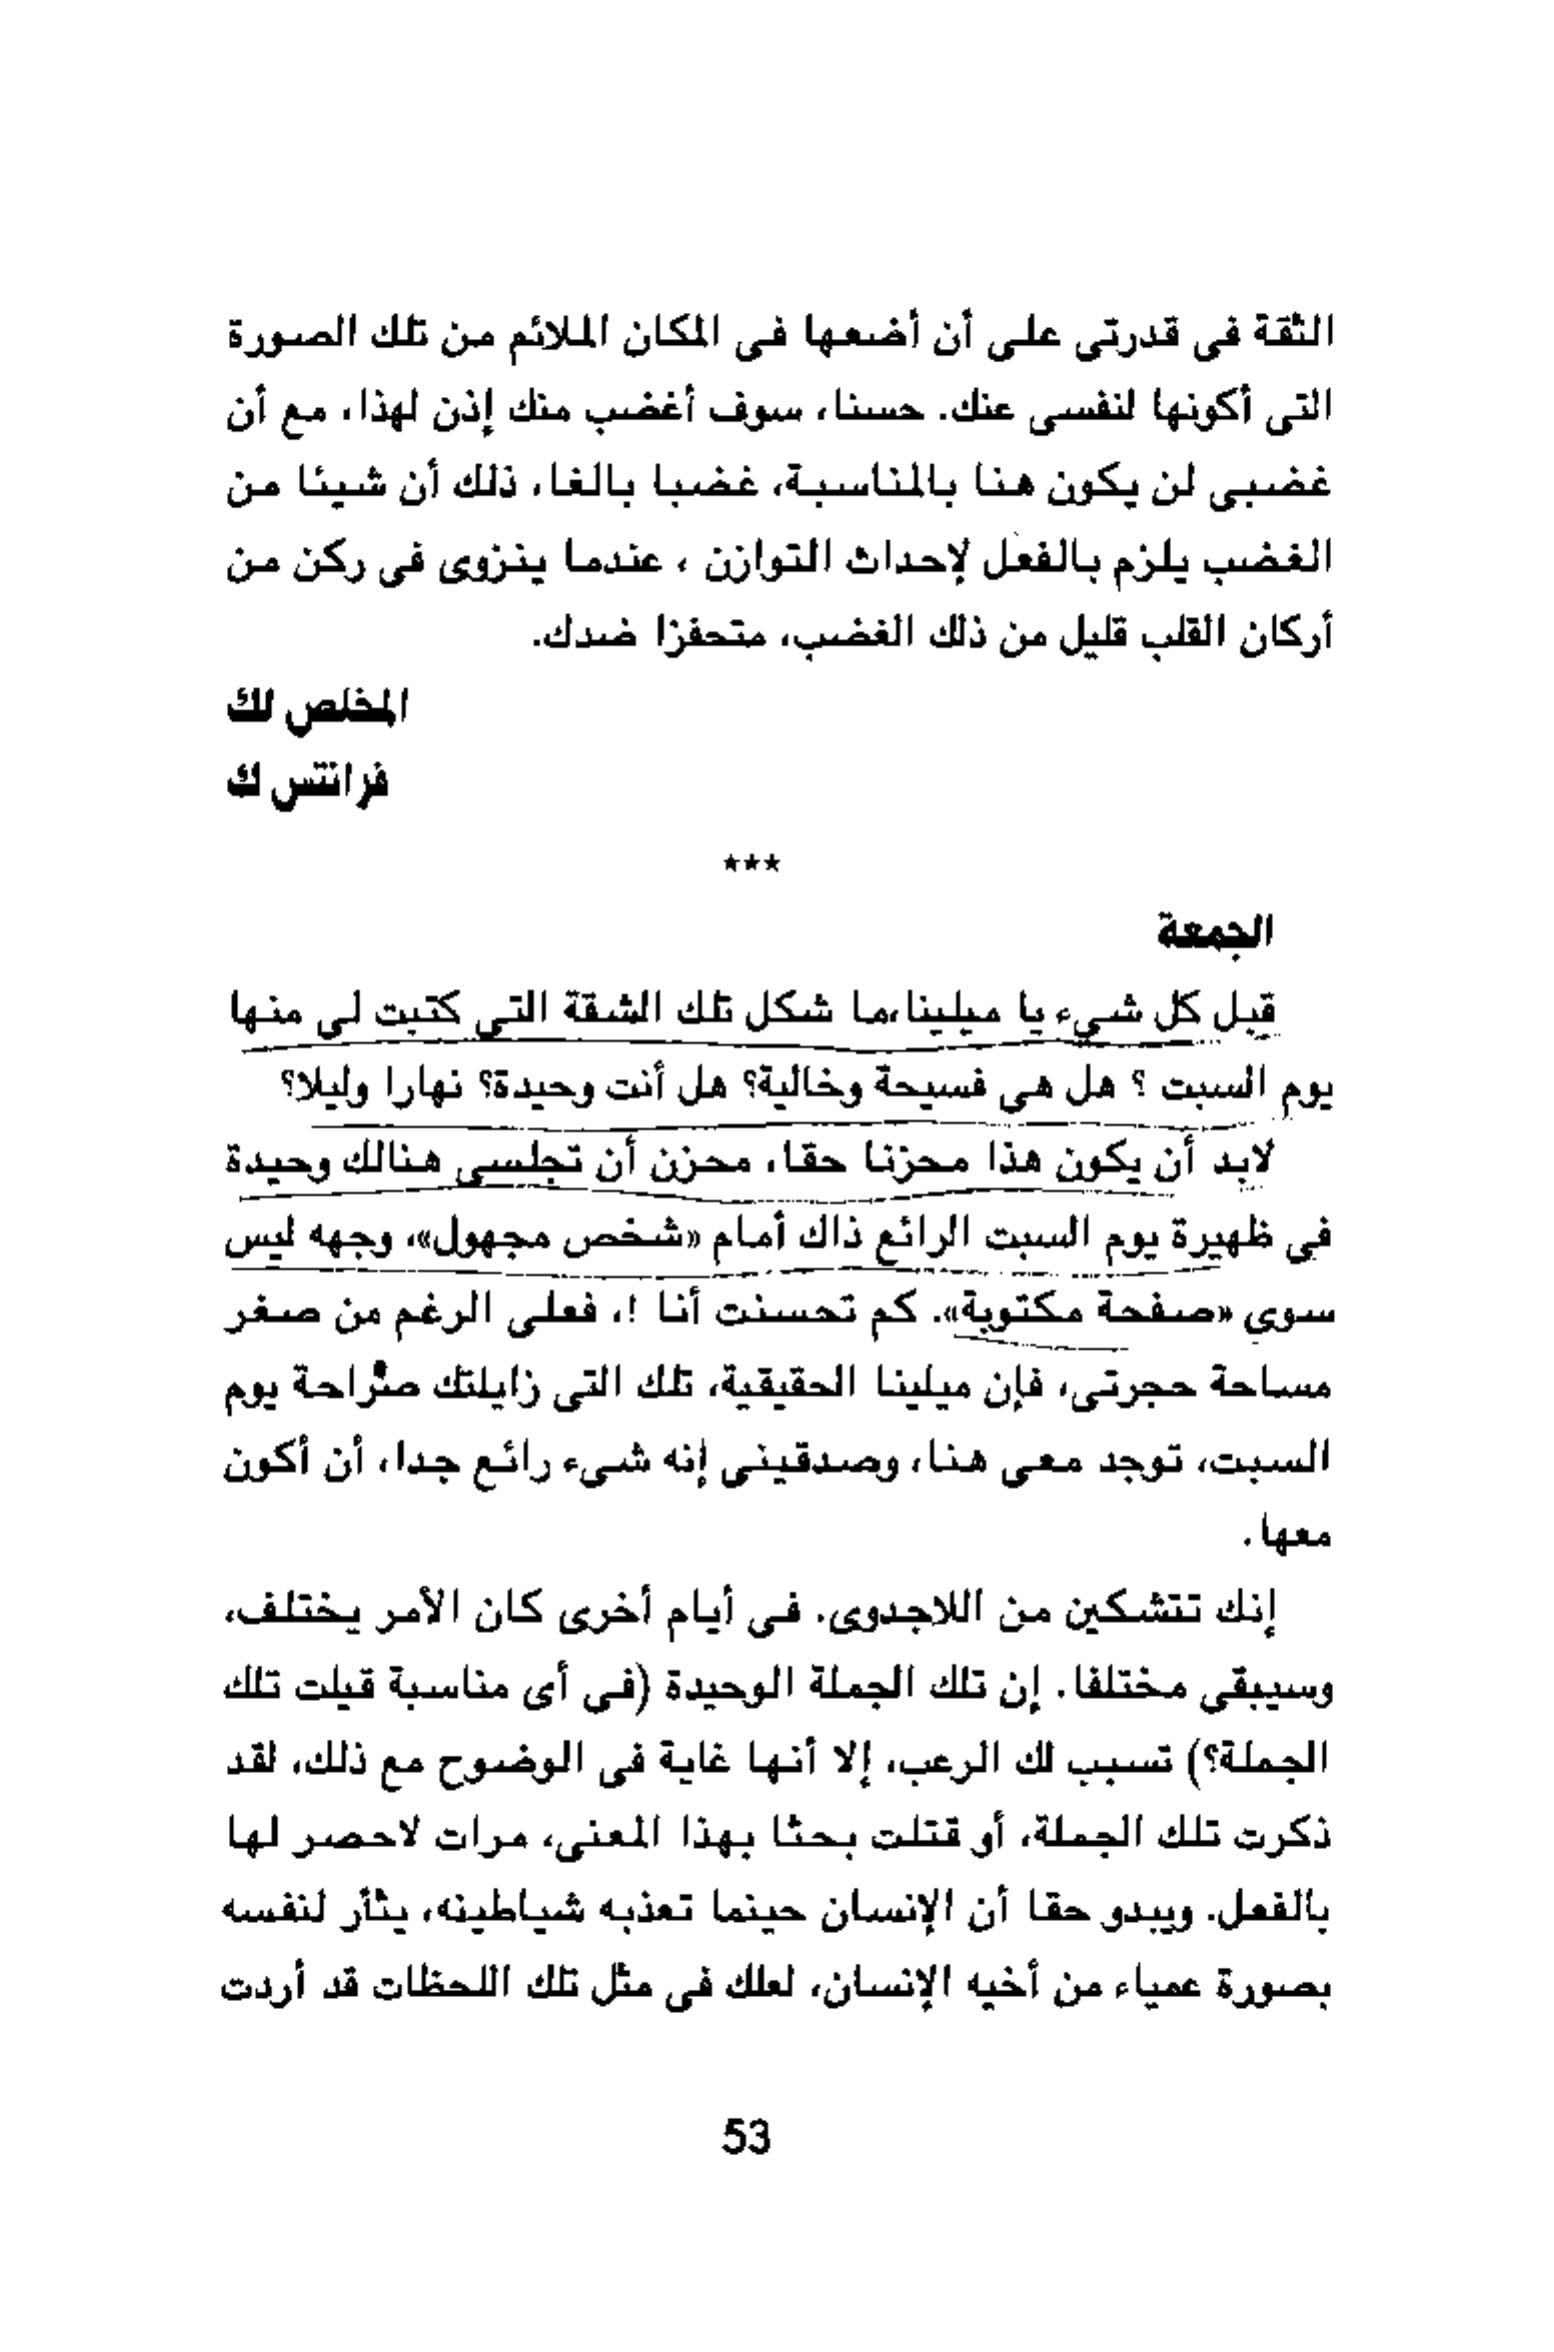 الثقة فى قدرتى على أن أضعها فى المكان الملائم من تلك الصورة
التى أكونها لنفسى عنك. حسنا، سوف أغضب منك إذن لهذا، مع أن
غضبى لن يكون هنا بالمناسبة، غضبا بالغا، ذلك أن شيئا من
الغضب يلزم بالفعل لإحداث التوازن ، عندما ينزوى فى ركن من
أركان القلب قليل من ذلك الغضب، متحفزا ضدك.
المخلص لك
فرانتس ك
***
الجمعة
قبل كل شىء يا ميلينا،ما شكل تلك الشقة التى كتبت لى منها
يوم السبت ؟ هل هى فسيحة وخالية؟ هل أنت وحيدة؟ نهارا وليلا؟
لابد أن يكون هذا محزنا حقا، محزن أن تجلسى هنالك وحيدة
فى ظهيرة يوم السبت الرائع ذاك أمام «شخص مجهول»، وجهه ليس
سوى «صفحة مكتوبة». كم تحسنت أنا !، فعلى الرغم من صغر
مساحة حجرتى، فإن ميلينا الحقيقية، تلك التى زايلتك صراحة يوم
السبت، توجد معى هنا، وصدقينى إنه شىء رائع جدا، أن أكون
معها.
إنك تتشكين من اللاجدوى. فى أيام أخرى كان الأمر يختلف،
وسيبقى مختلفا. إن تلك الجملة الوحيدة (فى أى مناسبة قيلت تلك
الجملة؟) تسبب لك الرعب، إلا أنها غاية فى الوضوح مع ذلك، لقد
ذكرت تلك الجملة، أو قتلت بحثا بهذا المعنى، مرات لاحصر لها
بالفعل. ويبدو حقا أن الإنسان حينما تعذبه شياطينه، يثأر لنفسه
بصورة عمياء من أخيه الإنسان، لعلك فى مثل تلك اللحظات قد أردت
53